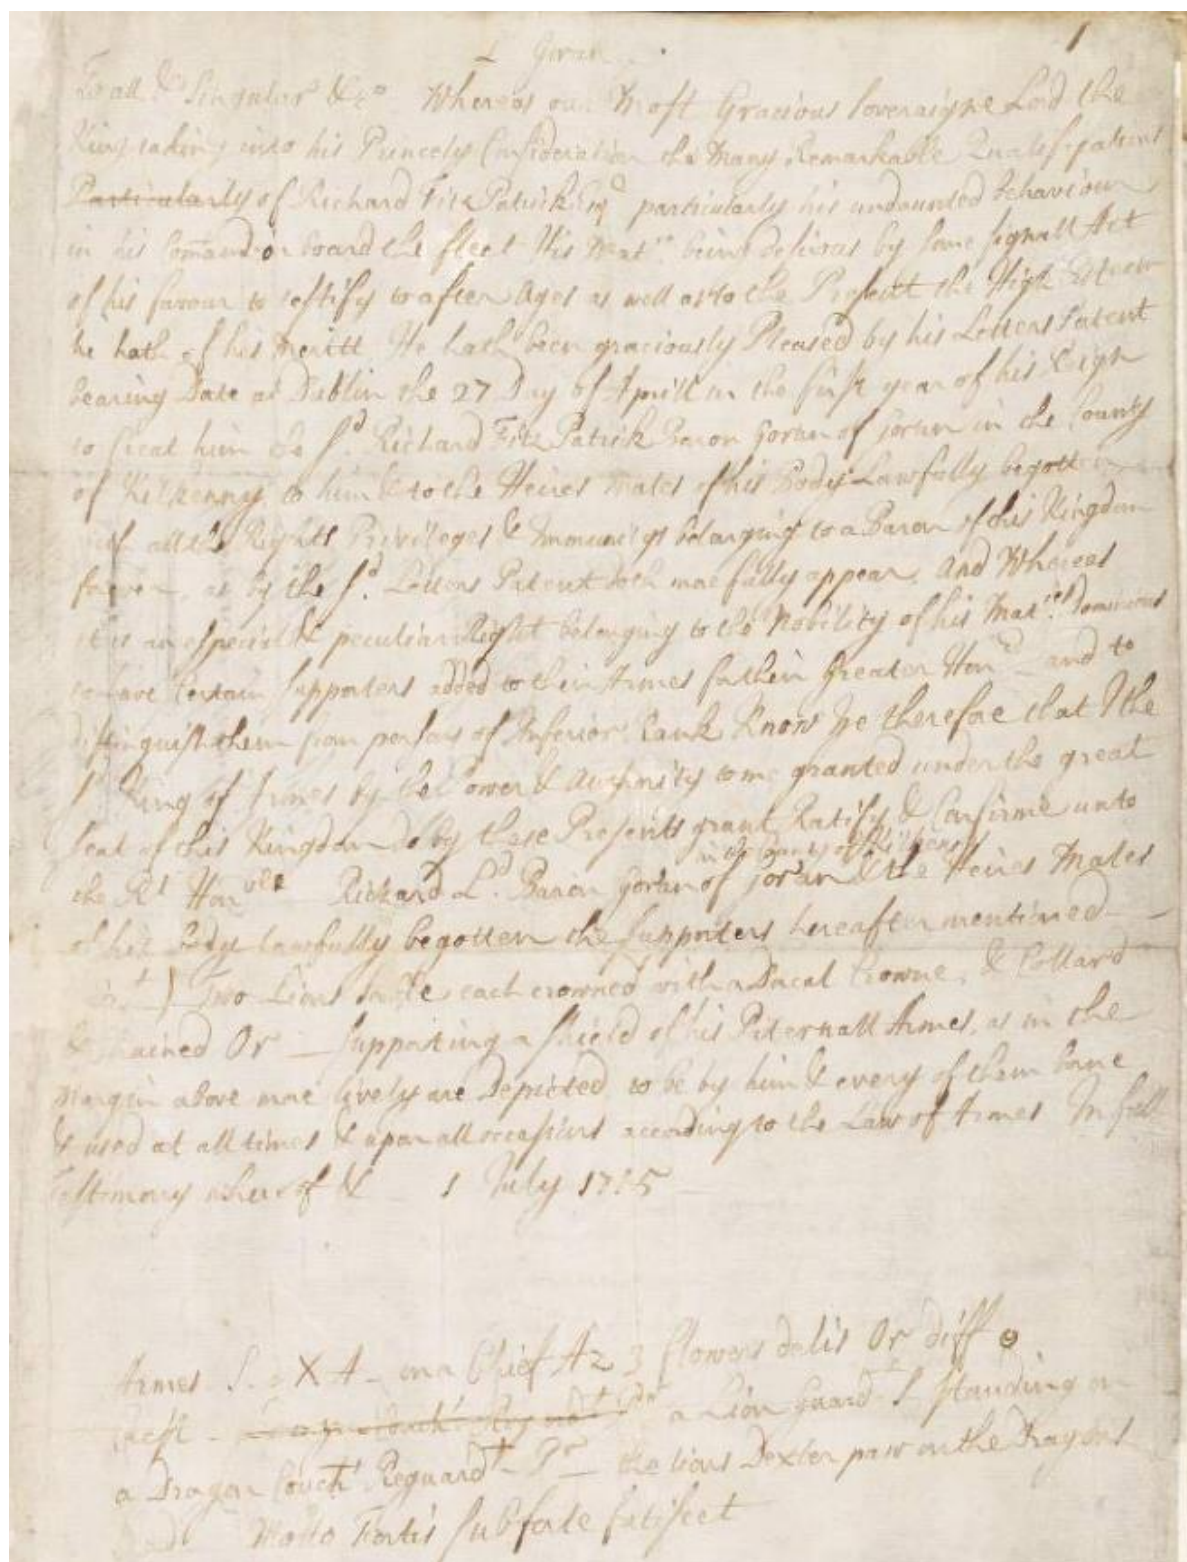 1 Goran
1
To all & Singular &ca Whereas our Most Gracious Soveraigne Lord the
King taking into his Princely Consideration the Many Remarkable
Particularly of Richard Fitz Patrick Esqr particularly his undaunted behaviour
in his Comand on board the fleet His Matie being desirous by some signall Act
of his favour to testify to after Ages as well as to the Present the High Esteem
he hath of his Meritt He hath been graciously Pleased by his Letters Patent
bearing Date at Dublin the 27 Day of Aprill in the first year of his Reign
to Creat him the sd. Richard Fitz Patrick Baron Goran of Goran in the County
of Kilkenny to him & to the Heires Males of his Body Lawfully begotten
with all the Rights Privileges & belonging to a Baron of this Kingdom
for ever, as by the sd. Letters Patent doth more fully appear. And Whereas
it is an especiall & peculiar Right belonging to the Nobility of his Maties Dominions
to have Certain Supporters added to their Armes for their Greater Honr and to
distinguish them from persons of Inferior Rank Know ye therefore that I the
sd King of Armes by the Power & Authority to me granted under the great
seal of this Kingdom do by these Presents grant Ratify & Confirme unto
in the County of Kilkenny
the Rt Honble Richard Ld. Baron Goran of Goran & the Heires Males
of his body lawfully begotten the supporters hereafter mentioned
Two Lions Sable each crowned with a Ducal Crowne, & Collard
& Chained Or supporting a shield of his Paternall Armes, as in the
Margin above more lively are Depicted to be by him & every of them borne
& used at all times & upon all occasions according to the Law of Armes In full
Testimony whereof & 1 July 1715
Armes S. a X A on a Chief Az 3 flowers delis Or diff
Crest a Lion Guardt S standing on
a Dragon Coucht Reguardt Pr the lions Dexter paw on the Dragons
Motto Fortis sub forte fatiscet